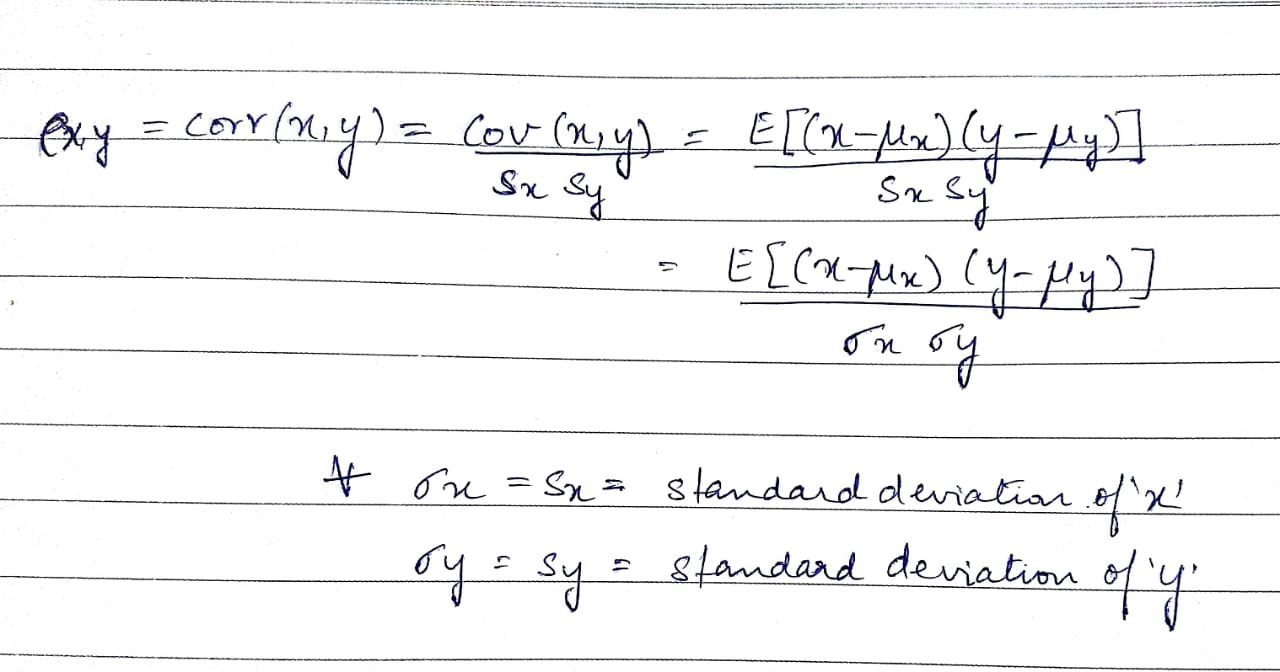 ρx,y = corr(x,y) = Cov(x,y) / Sx Sy = E[(x-μx)(y-μy)] / Sx Sy
= E[(x-μx)(y-μy)] / σx σy
* σx = Sx = standard deviation of 'x'
σy = Sy = standard deviation of 'y'